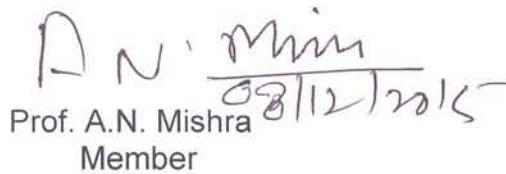 A N. Mishra
08/12/2015
Prof. A.N. Mishra
Member